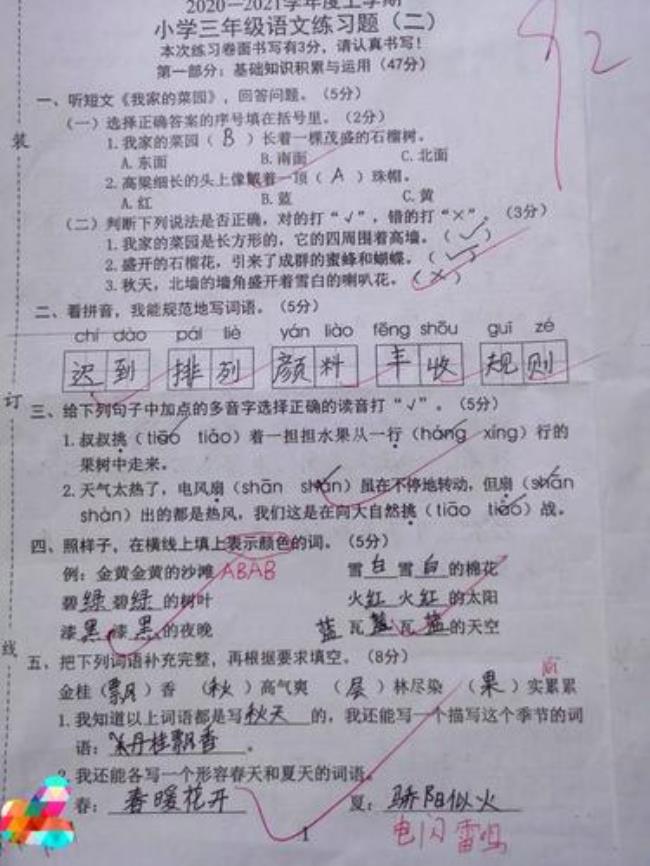 2020—2021学年度上学期
小学三年级语文练习题（二）
92
本次练习卷面书写有3分，请认真书写！
第一部分：基础知识积累与运用（47分）
一、听短文《我家的菜园》，回答问题。（5分）
（一）选择正确答案的序号填在括号里。（2分）
装
1.我家的菜园（B）长着一棵茂盛的石榴树。
A.东面 B.南面 C.北面
2.高粱细长的头上像戴着一顶（A）珠帽。
A.红 B.蓝 C.黄
（二）判断下列说法是否正确，对的打“√”，错的打“×”。（3分）
1.我家的菜园是长方形的，它的四周围着高墙。（√）
2.盛开的石榴花，引来了成群的蜜蜂和蝴蝶。（√）
3.秋天，北墙的墙角盛开着雪白的喇叭花。（×）
二、看拼音，我能规范地写词语。（5分）
chí dào pái liè yán liào fēng shōu guī zé
迟到 排列 颜料 丰收 规则
订
三、给下列句子中加点的多音字选择正确的读音打“√”。（5分）
1.叔叔挑（tiāo tiǎo）着一担担水果从一行（háng xíng）行的
果树中走来。
2.天气太热了，电风扇（shān shàn）虽在不停地转动，但扇（shān
shàn）出的都是热风，我们这是在向大自然挑（tiāo tiǎo）战。
四、照样子，在横线上填上表示颜色的词。（5分）
例：金黄金黄的沙滩 ABAB 雪白雪白的棉花
碧绿碧绿的树叶 火红火红的太阳
线
漆黑漆黑的夜晚 蓝瓦蓝瓦蓝的天空
五、把下列词语补充完整，再根据要求填空。（8分）
金桂（飘）香 （秋）高气爽 （层）林尽染 （果）实累累
1.我知道以上词语都是写秋天的，我还能写一个描写这个季节的词
语：丹桂飘香。
2.我还能各写一个形容春天和夏天的词语。
春：春暖花开 夏：骄阳似火
电闪雷鸣
1